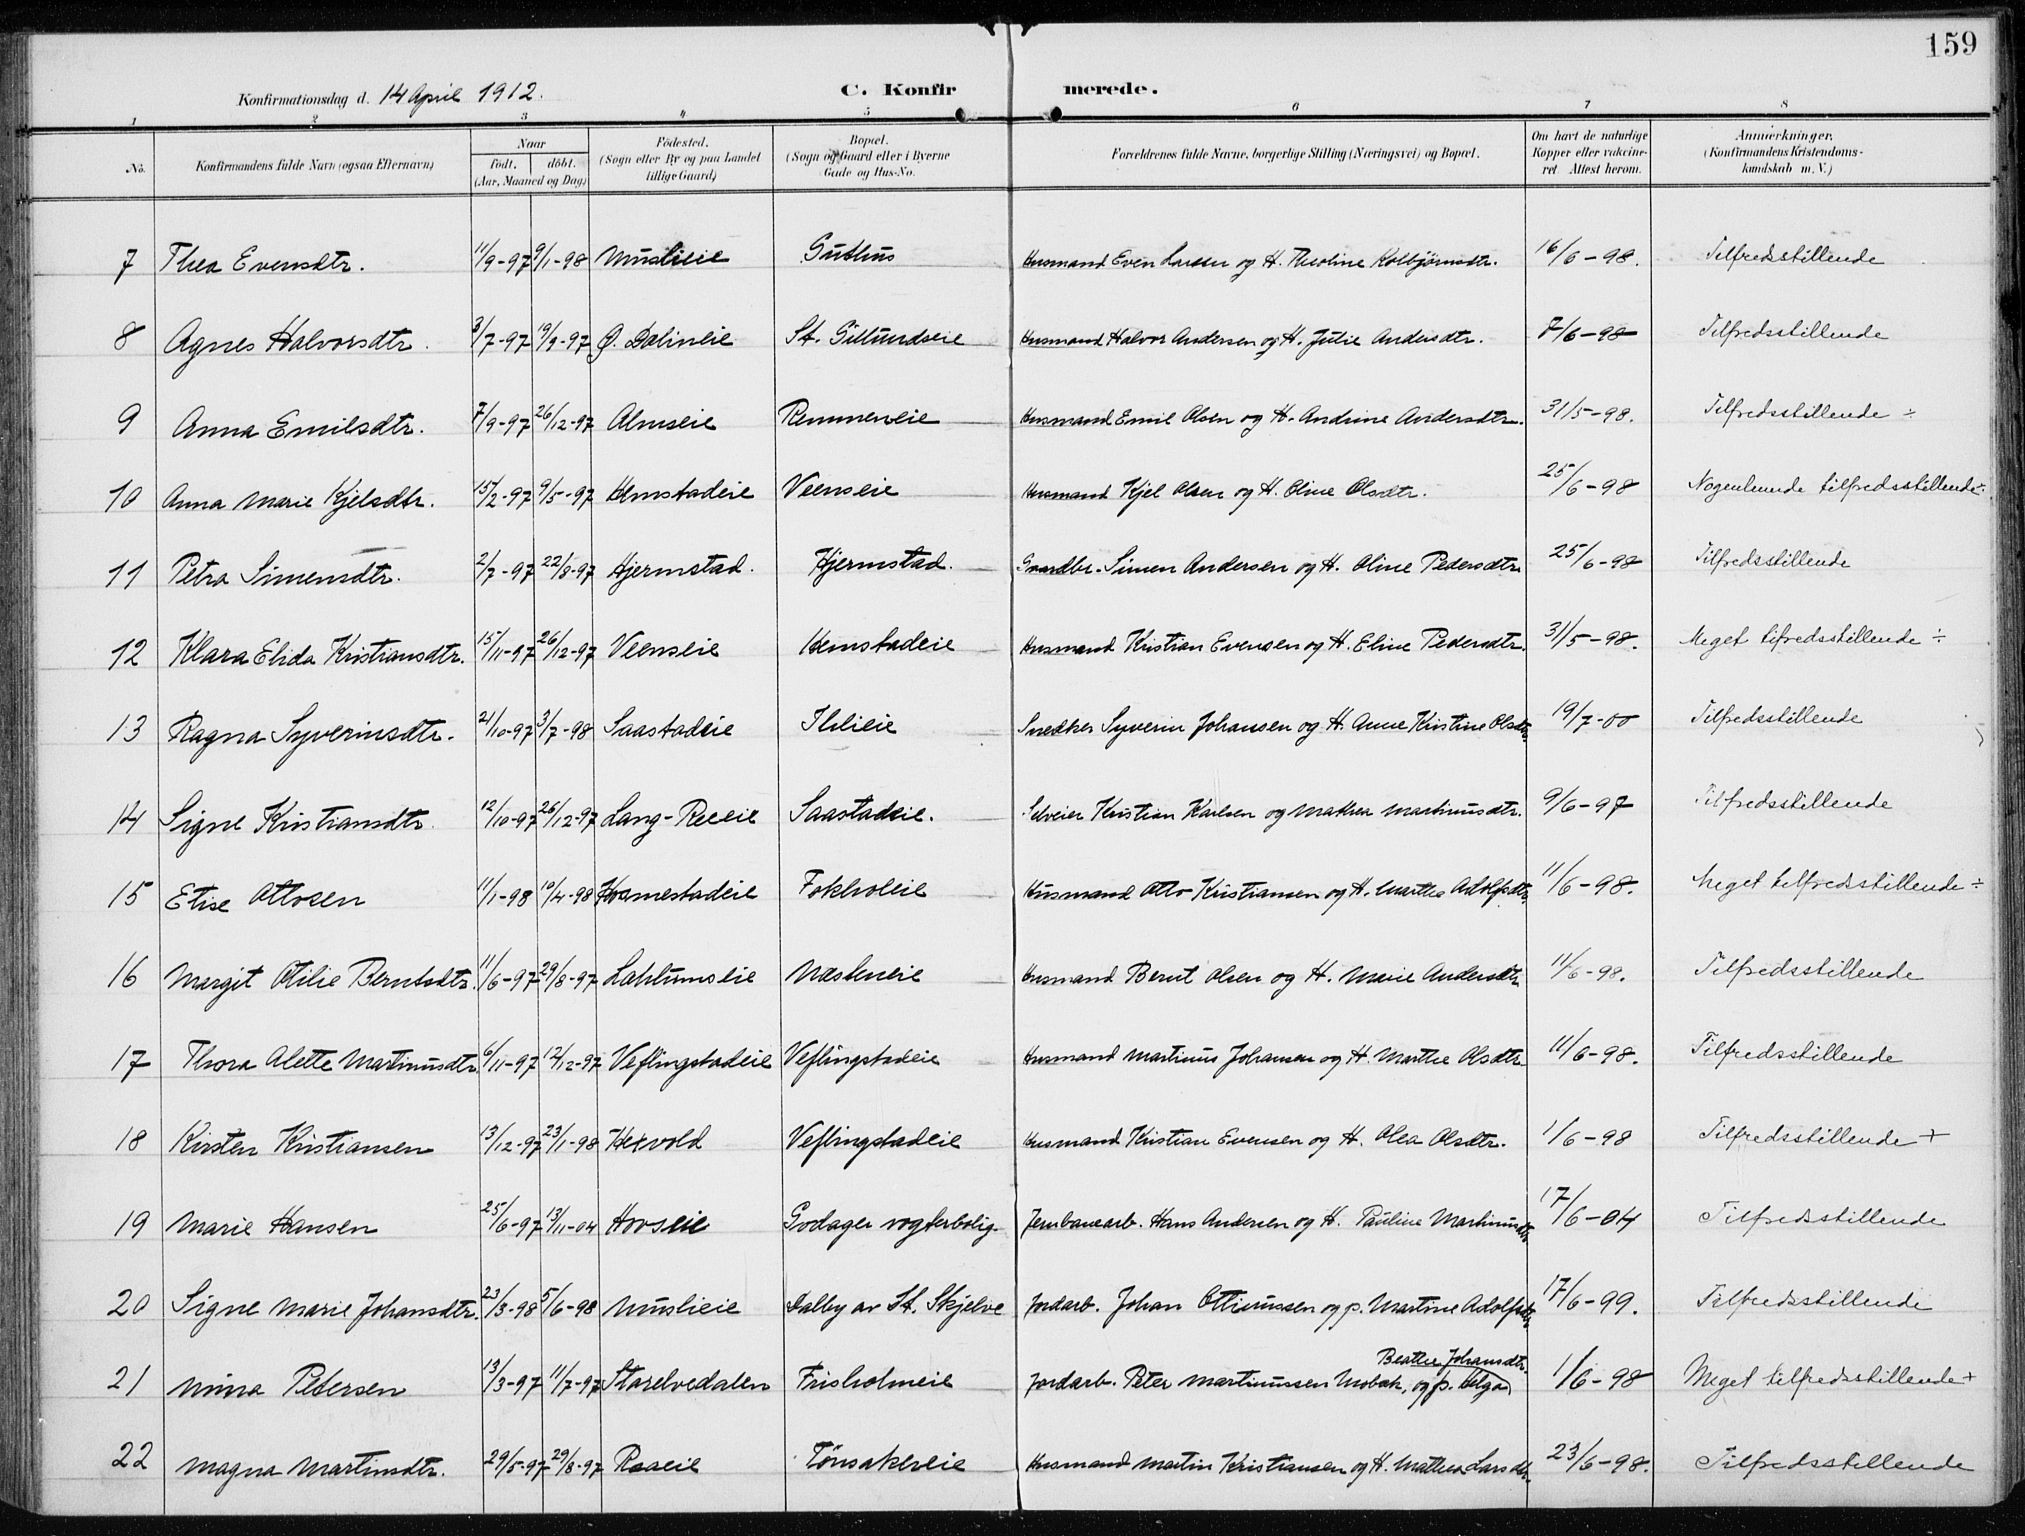 159
Konfirmationsdag d. 14 April 1912.
C. Konfirmerede.
1 2 3 4 5 6 7 8
No. | Konfirmandens fulde Navn (ogsaa Efternavn) | Naar født. døbt. (Aar, Maaned og Dag.) | Fødested. (Sogn eller By og paa Landet tillige Gaard) | Bopæl. (Sogn og Gaard eller i Byerne Gade og Hus-No. | Forældrenes fulde Navne, borgerlige Stilling (Næringsvei) og Bopæl. | Om havt de naturlige Kopper eller vakcineret Attest herom. | Anmerkninger. (Konfirmandens Kristendomskundskab m. V.)
7 Thea Evensdtr. 11/9-97 9/1-98 Muslieie Guthus Husmand Even Larsen og H. Theoline Kolbjørnsdtr. 16/6-98. Tilfredsstillende
8 Agnes Halvorsdtr. 3/7-97 19/9-97 Ø. Dalineie St. Gillundseie Husmand Halvor Andersen og H. Julie Andersdtr. 7/6-98 Tilfredsstillende
9 Anna Emilsdtr. 7/9-97 26/12-97 Almseie Remmeneie Husmand Emil Olsen og H. Andrine Andersdtr. 31/5-98. Tilfredsstillende ÷
10 Anna Marie Kjelsdtr. 15/2-97 9/5-97 Hemstadeie Veenseie Husmand Kjel Olsen og H. Oline Olsdtr. 25/6-98 Nogenlunde tilfredsstillende ÷
11 Petra Simensdtr. 2/7-97 22/8-97 Hjermstad. Hjermstad. Gaardbr. Simen Andersen og H. Oline Pedersdtr. 25/6-98 Tilfredsstillende
12 Klara Elida Kristiansdtr. 15/11-97 26/12-97 Veenseie Hemstadeie Husmand Kristian Evensen og H. Eline Pedersdtr. 31/5-98. Meget tilfredsstillende ÷
13 Ragna Syverinsdtr. 21/10-97 3/7-98 Saastadeie Ihlieie Snedker Syverin Johansen og H. Anne Kristine Olsdtr. 19/7-00 Tilfredsstillende
14 Signe Kristiansdtr. 12/10-97 26/12-97 Lang-Reeeie Saastadeie. Selveier Kristian Karlsen og Mathea Martinusdtr. 9/6-97 Tilfredsstillende
15 Elise Ottosen 11/1-98 10/4-98 Hosmestadeie Fokholeie Husmand Otto Kristiansen og H. Marthe Adolfsdtr. 11/6-98. Meget tilfredsstillende ÷
16 Margit Otilie Berntsdtr. 11/6-97 29/8-97 Lahlumseie Næshneie Husmand Bernt Olsen og H. Marie Andersdtr. 11/6-98. Tilfredsstillende
17 Thora Alette Martinusdtr. 6/11-97 12/12-97 Veflingstadeie Veflingstadeie Husmand Martinus Johansen og H. Marthe Olsdtr. 11/6-98. Tilfredsstillende
18 Kirsten Kristiansen 13/12-97 23/1-98 Hexvold Veflingstadeie Husmand Kristian Evensen og H. Olea Olsdtr. 1/6-98 Tilfredsstillende +
19 Marie Hansen 25/6-97 13/11-04 Hovseie Godager vogterbolig. Jernbanearb. Hans Andersen og H. Pauline Martinusdtr. 17/6-04 Tilfredsstillende
20 Signe Marie Johansdtr. 23/3-98 5/6-98 Muslieie Dalby av St. Skjelve Jordarb. Johan Ottinussen og p. Martine Adolfsdtr. 17/6-99. Tilfredsstillende
Beathe Johansdtr.
21 Mina Petersen 13/3-97 11/7-97 Storelvedalen Frisholmeie Jordarb. Peter Martinussen Mobæk, og p. Helga 1/6-98 Meget tilfredsstillende +
22 Magna Martinsdtr. 29/5-97 29/8-97 Raaeie Tønsakereie Husmand Martin Kristiansen og H. Mathea Larsdtr. 23/6-98. Tilfredsstillende